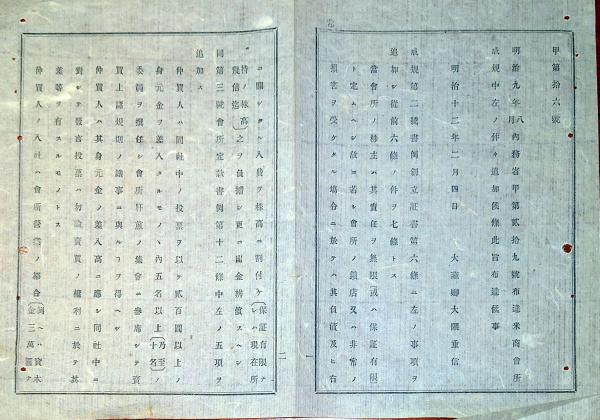 甲第拾六號
明治九年八月內務省甲第貳拾九號布達米商會所
成規中左ノ件々追加候條此旨布達候事
明治十二年二月四日
大藏卿大隈重信
成規第二號書例創立証書第六條ニ左ノ事項ヲ
追加シ從前六條ノ件ヲ七條トス
當會所ノ株主ハ其責任ヲ無限(或ハ保証有限)
ト定ムヘシ故ニ若シ會所ノ鎖店又ハ非常ノ
損害ヲ受クタル塲合ニ於テハ其負債及ヒ右
一
二
ニ關シタル入費ヲ株高ニ割付ケ(保証有限テレハ現在所
持ノ株高幾倍迄)之ヲ負擔シ更ニ出金辨償スヘシ
同第三號會所定款書例第十二條中左ノ五項ヲ
追加ス
仲買人ハ同社中ノ投票ヲ以テ貳百圓以上ノ
身元金ヲ差入タルモノヽ內五名以上(乃至十名)ノ
委員ヲ撰任シ會所肝煎ノ集會ニ參席シテ賣
買上諸規則ノ議事ニ與ルコヲ得ヘシ
仲買人ハ其身元金ノ差入高ニ應シ同社中ニ
對シテ發言投票ハ勿論賣買ノ權利ニ於テ其
差等ヲ有スルモノトス
仲買人ノ入社ハ會所營業ノ都合